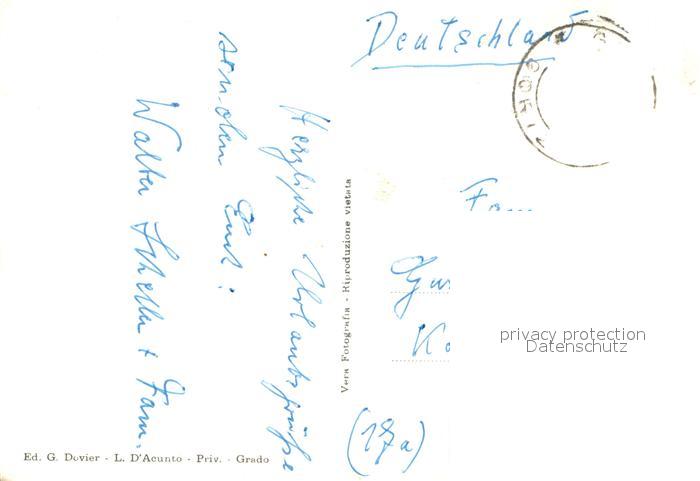 Deutschland
Herzliche Urlaubsgrüße
senden Euch:
Walter + Fam.
Vera Fotografia - Riproduzione vietata
(17a)
privacy protection
Datenschutz
Ed. G. Dovier - L. D'Acunto - Priv. - Grado